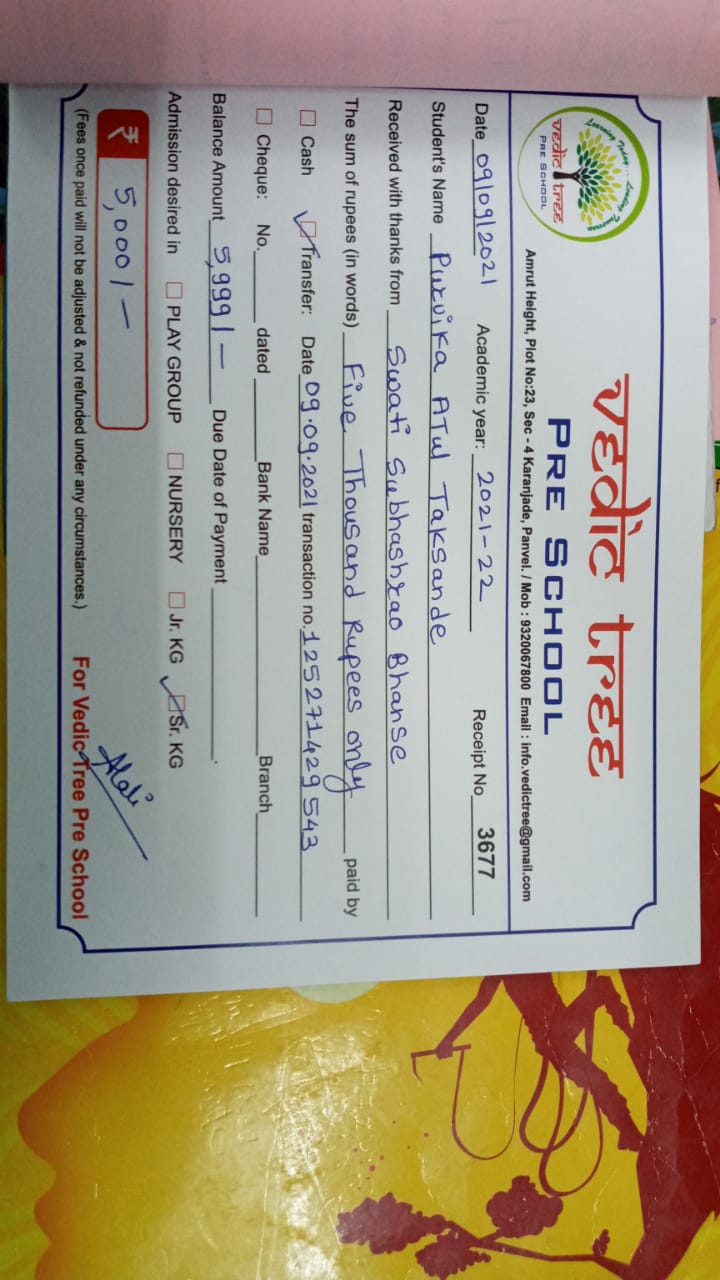 Learning Today... Leading Tomorrow
vedic tree
PRE SCHOOL
vedic tree
PRE SCHOOL
Amrut Height, Plot No:23, Sec - 4 Karanjade, Panvel. / Mob : 9320067800 Email : info.vedictree@gmail.com
Date 09/09/2021 Academic year: 2021-22 Receipt No 3677
Student's Name Purvika Atul Taksande
Received with thanks from Swati Subhashrao Bhanse
The sum of rupees (in words) Five Thousand Rupees only paid by
Cash Transfer: Date 09.09.2021 transaction no. 125271429543
Cheque: No. dated Bank Name Branch
Balance Amount 5,999/- Due Date of Payment .
Admission desired in PLAY GROUP NURSERY Jr. KG Sr. KG
₹ 5,000/-
(Fees once paid will not be adjusted & not refunded under any circumstances.) For Vedic Tree Pre School